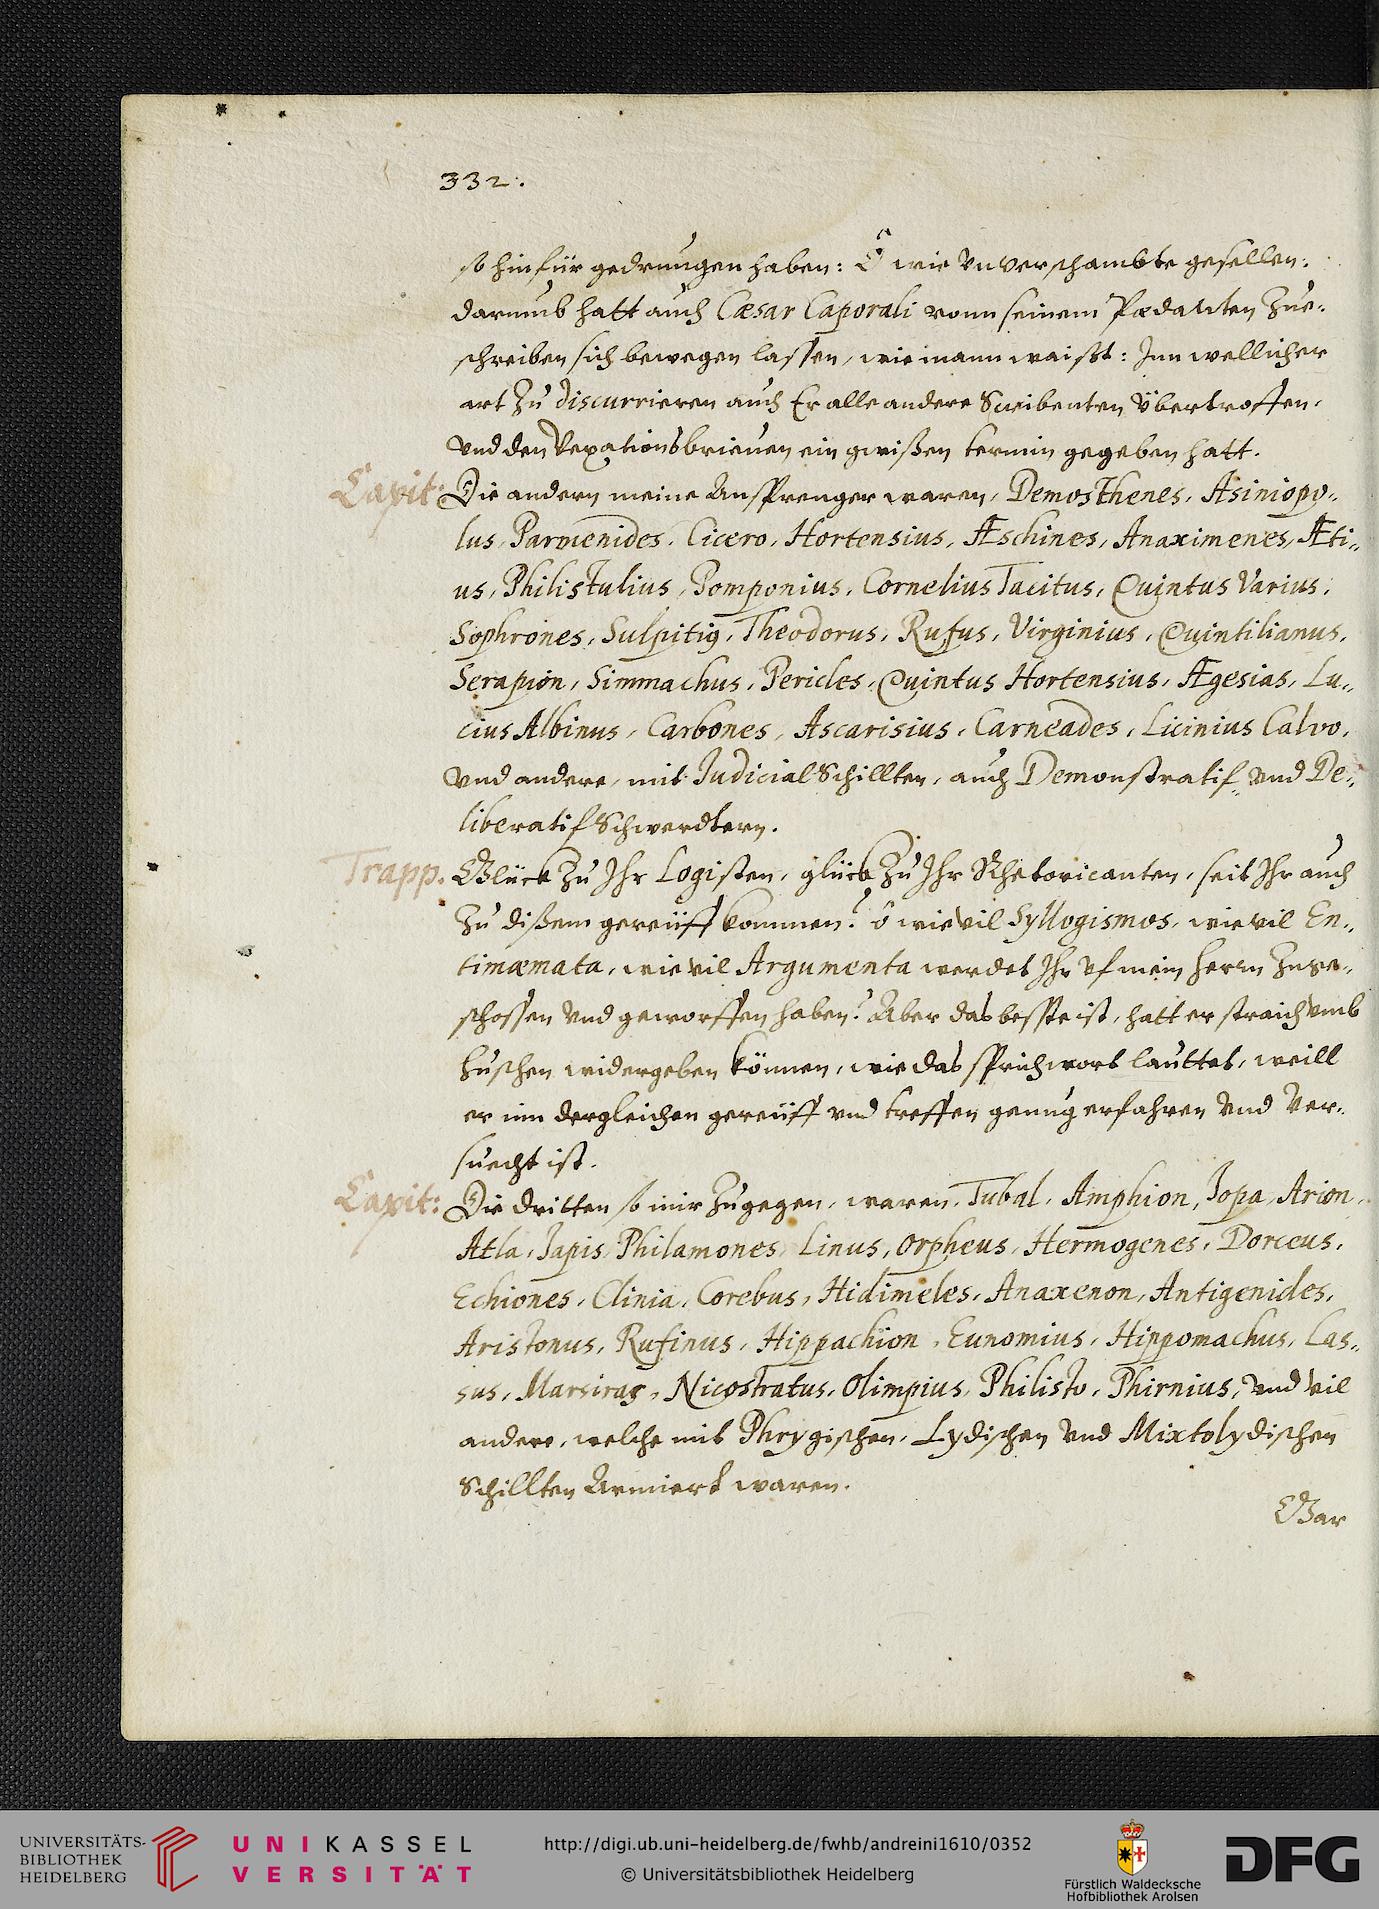 332.
so hinfür gedrungen haben: Ô wie unverschambte gesellen.
darumb hatt auch Cæsar Caporali vonn seinem Pædanten Zue-
schreiben sich bewegen lassen, wie mann waißt: Jnn wellicher
art Zu discurrieren auch Er alle andere Scribenten übertroffen,
und den Vexationsbrieuen ein gwißen termin gegeben hatt.
Capit: Die andern meine Ansprenger waren, Demosthenes, Asiniopo-
lus, Parmenides, Cicero, Hortensius, Æschines, Anaximenes, Æti-
us, Philistulius, Pomponius, Cornelius Tacitus, Quintus Varius,
Sophrones, Sulpitius, Theodorus, Rufus, Virginius, Quintilianus,
Serapion, Simmachus, Pericles, Quintus Hortensius, Ægesias, Lu-
cius Albinus, Carbones, Ascarisius, Carneades, Licinius Calvo,
und andere, mit Judicial Schillten, auch Demonstratif- und De-
liberatif Schwerdtern.
Trapp. Glück Zu Jhr Logisten, glück Zu Jhr Rhetoricanten, seit Jhr auch
Zu dißem gereüff kommen? ô wie vil Syllogismos, wie vil En-
timæmata, wie vil Argumenta werdet Jhr uf mein herrn Zuge-
schossen und geworffen haben? Aber das besste ist, hatt er straich umb
huschen widergeben können, wie das sprichwort lauttet, weill
er inn dergleichen gereüff und treffen genug erfahren und ver-
suecht ist.
Capit: Die dritten so mir Zugegen, waren, Tubal, Amphion, Jopa, Arion,
Atla, Japis, Philamones, Linus, Orpheus, Hermogenes, Dorceus,
Echiones, Clinia, Corebus, Hidimeles, Anaxenon, Antigenides,
Aristonus, Rufinus, Hippachion, Eunomius, Hippomachus, Las-
sus, Marsias, Nicostratus, Olimpius, Philisto, Phirnius, und vil
andere, welche mit Phrygischen, Lydischen und Mixtolydischen
Schillten Armiert waren.
Gar
UNIVERSITÄTS-
BIBLIOTHEK
HEIDELBERG
UNIKASSEL
VERSITÄT
http://digi.ub.uni-heidelberg.de/fwhb/andreini1610/0352
© Universitätsbibliothek Heidelberg
Fürstlich Waldecksche
Hofbibliothek Arolsen
DFG